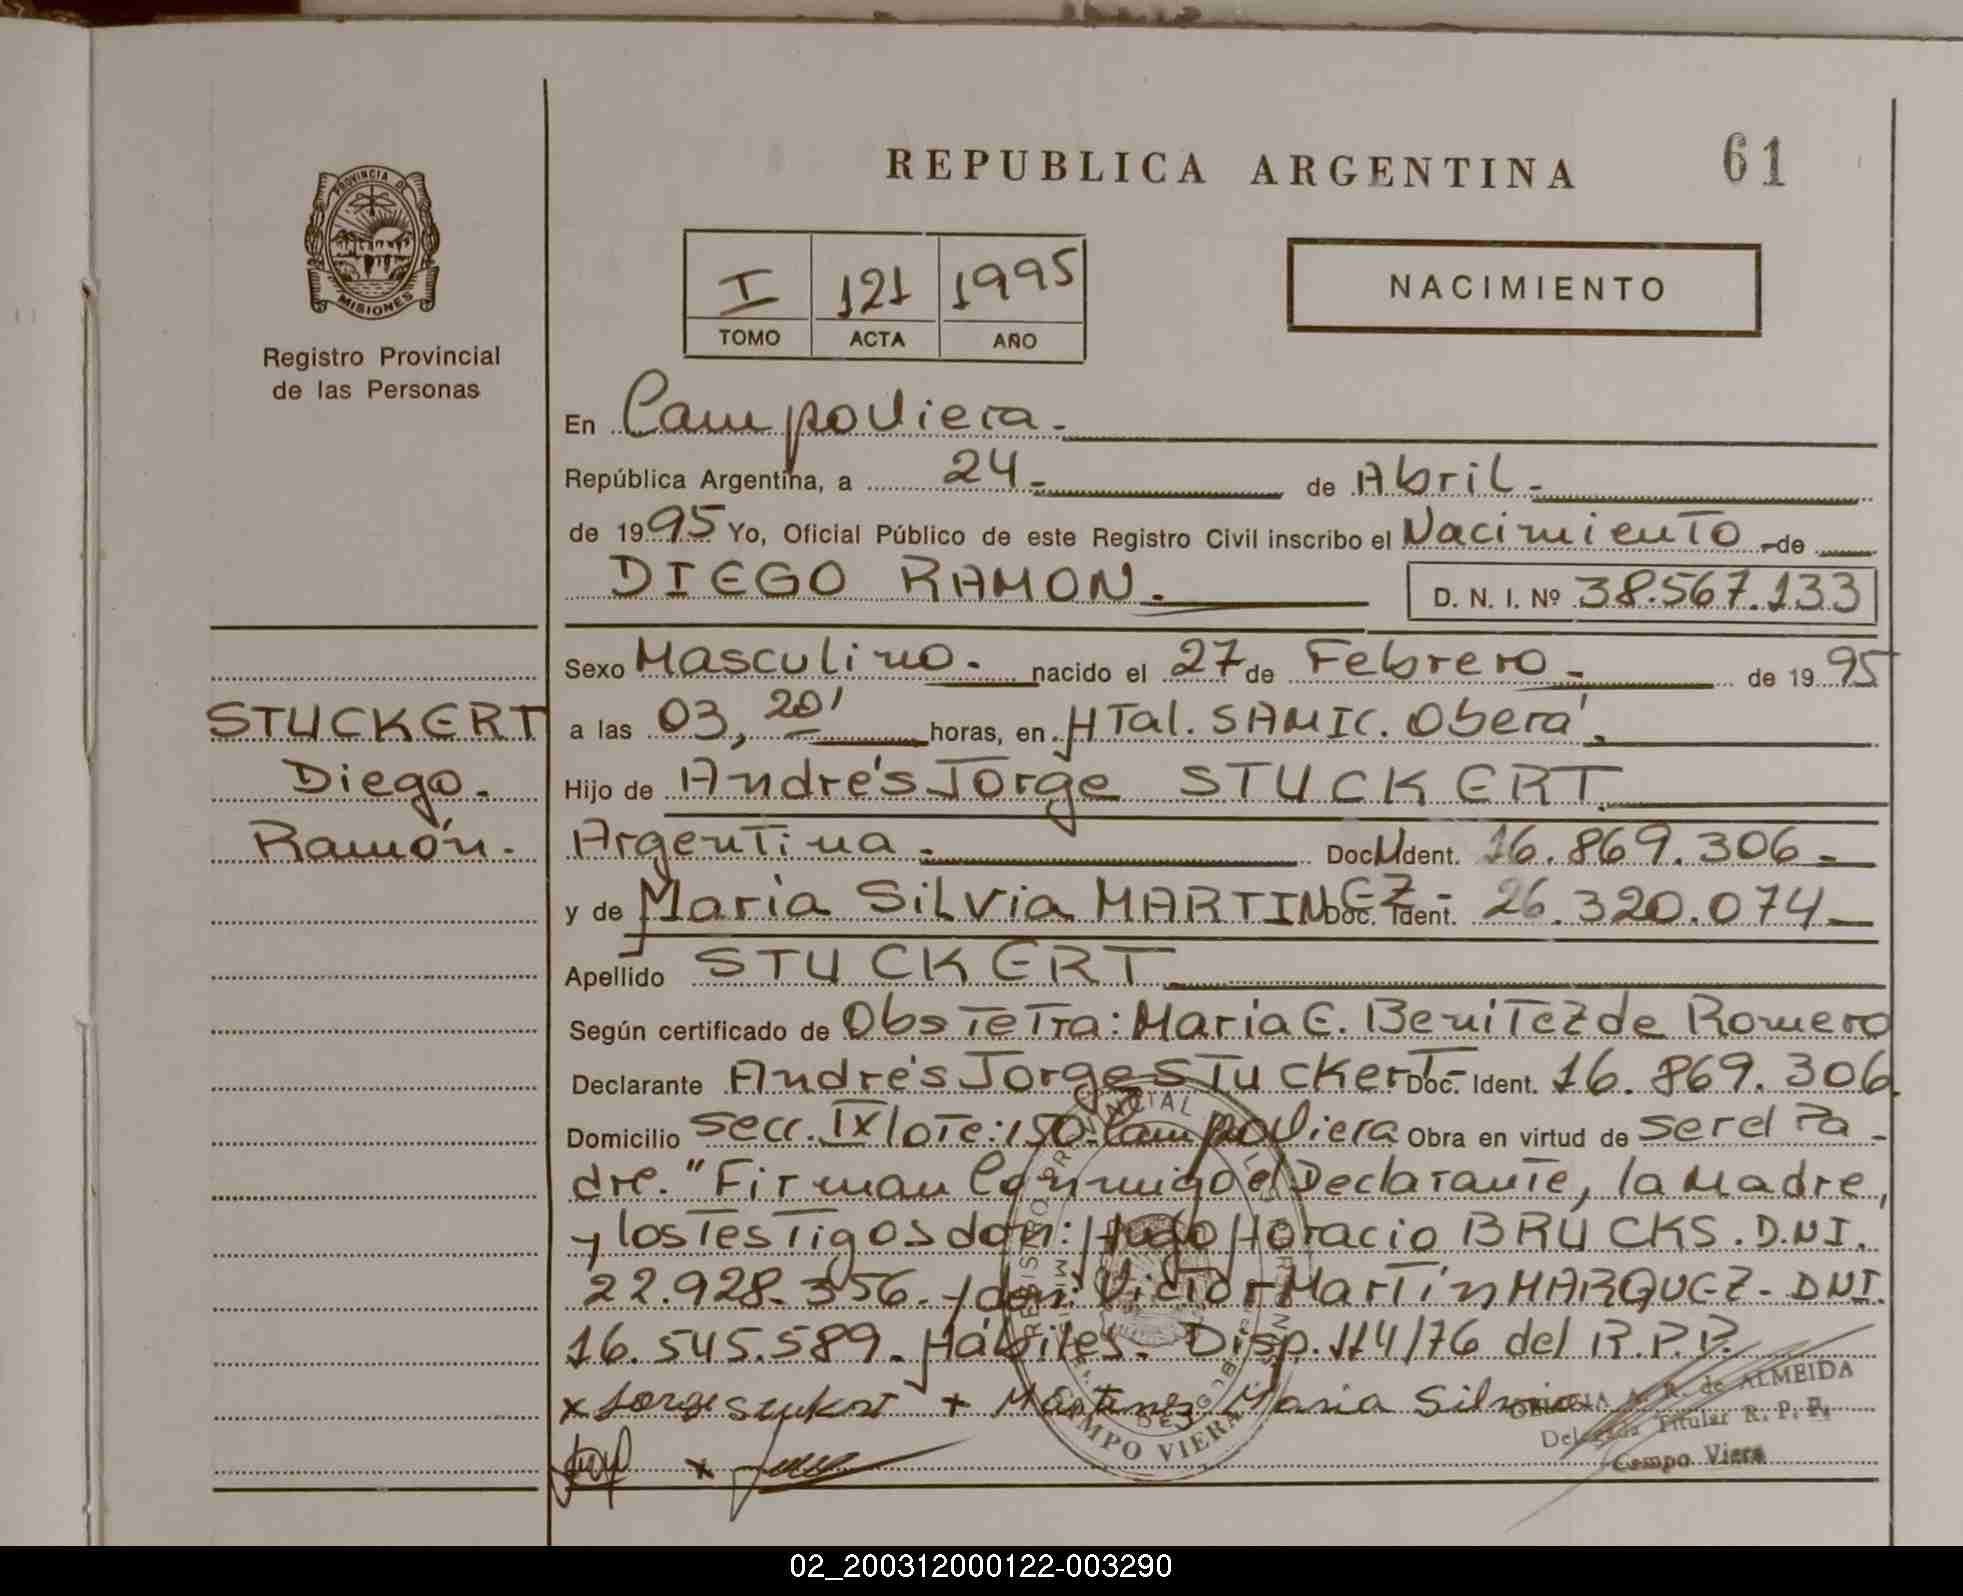 REPUBLICA ARGENTINA
61
PROVINCIA DE
MISIONES
Registro Provincial
de las Personas
I 121 1995
TOMO ACTA AÑO
NACIMIENTO
En Campo Viera.
República Argentina, a 24 - de Abril -
de 1995 Yo, Oficial Público de este Registro Civil inscribo el Nacimiento - de
DIEGO RAMON. D. N. I. Nº 38.567.133
Sexo Masculino. nacido el 27 de Febrero - de 1995
a las 03, 20' horas, en HTal. SAMIC. Oberá.
Hijo de Andrés Jorge STUCKERT.
Argentina - Doc. Ident. 16.869.306 -
y de Maria Silvia MARTINEZ - Doc. Ident. 26.320.074 -
Apellido STUCKERT
Según certificado de Obstetra: Maria E. Benitez de Romero
Declarante Andrés Jorge STUckerT - Doc. Ident. 16.869.306
Domicilio Secc. IX lote: 150 - Campo Viera Obra en virtud de ser el Pa -
dre. "Firman Conmigo el Declarante, la Madre,
y los Testigos don: Hugo Horacio BRUCKS. D.N.I.
22.928.356. y don: Victor Martín MARQUEZ - DNI.
16.545.589. Hábiles. Disp. 114/76 del R.P.P.
x Jorge stukert + Martinez Maria Silvia
x
STUCKERT
Diego.
Ramón.
CAMPO VIERA
A. R. de ALMEIDA
Delegada Titular R. P. P.
Campo Viera
02_200312000122-003290